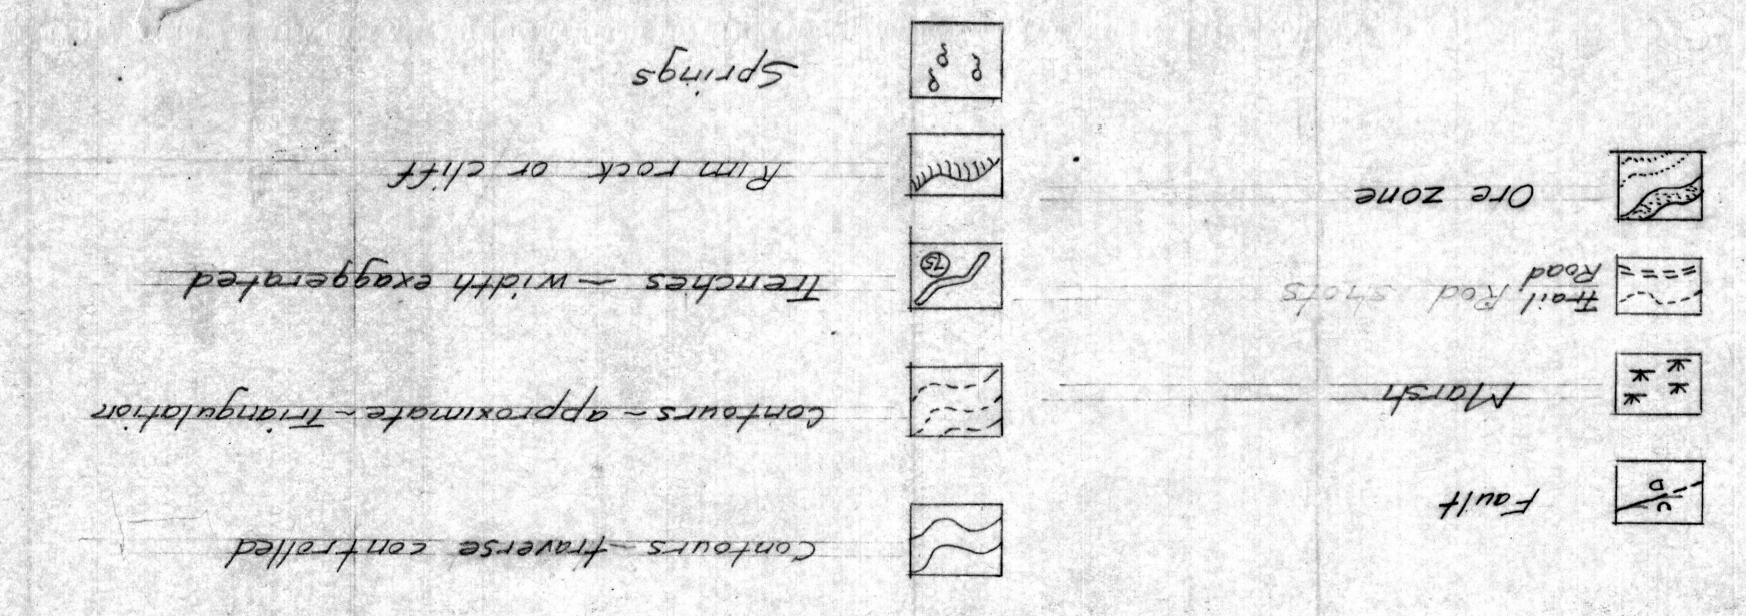 Fault
Marsh
Trail Rod shots
Road
Ore zone
Contours - traverse controlled
Contours - approximate - Triangulation
75
Trenches - width exaggerated
Rim rock or cliff
Springs